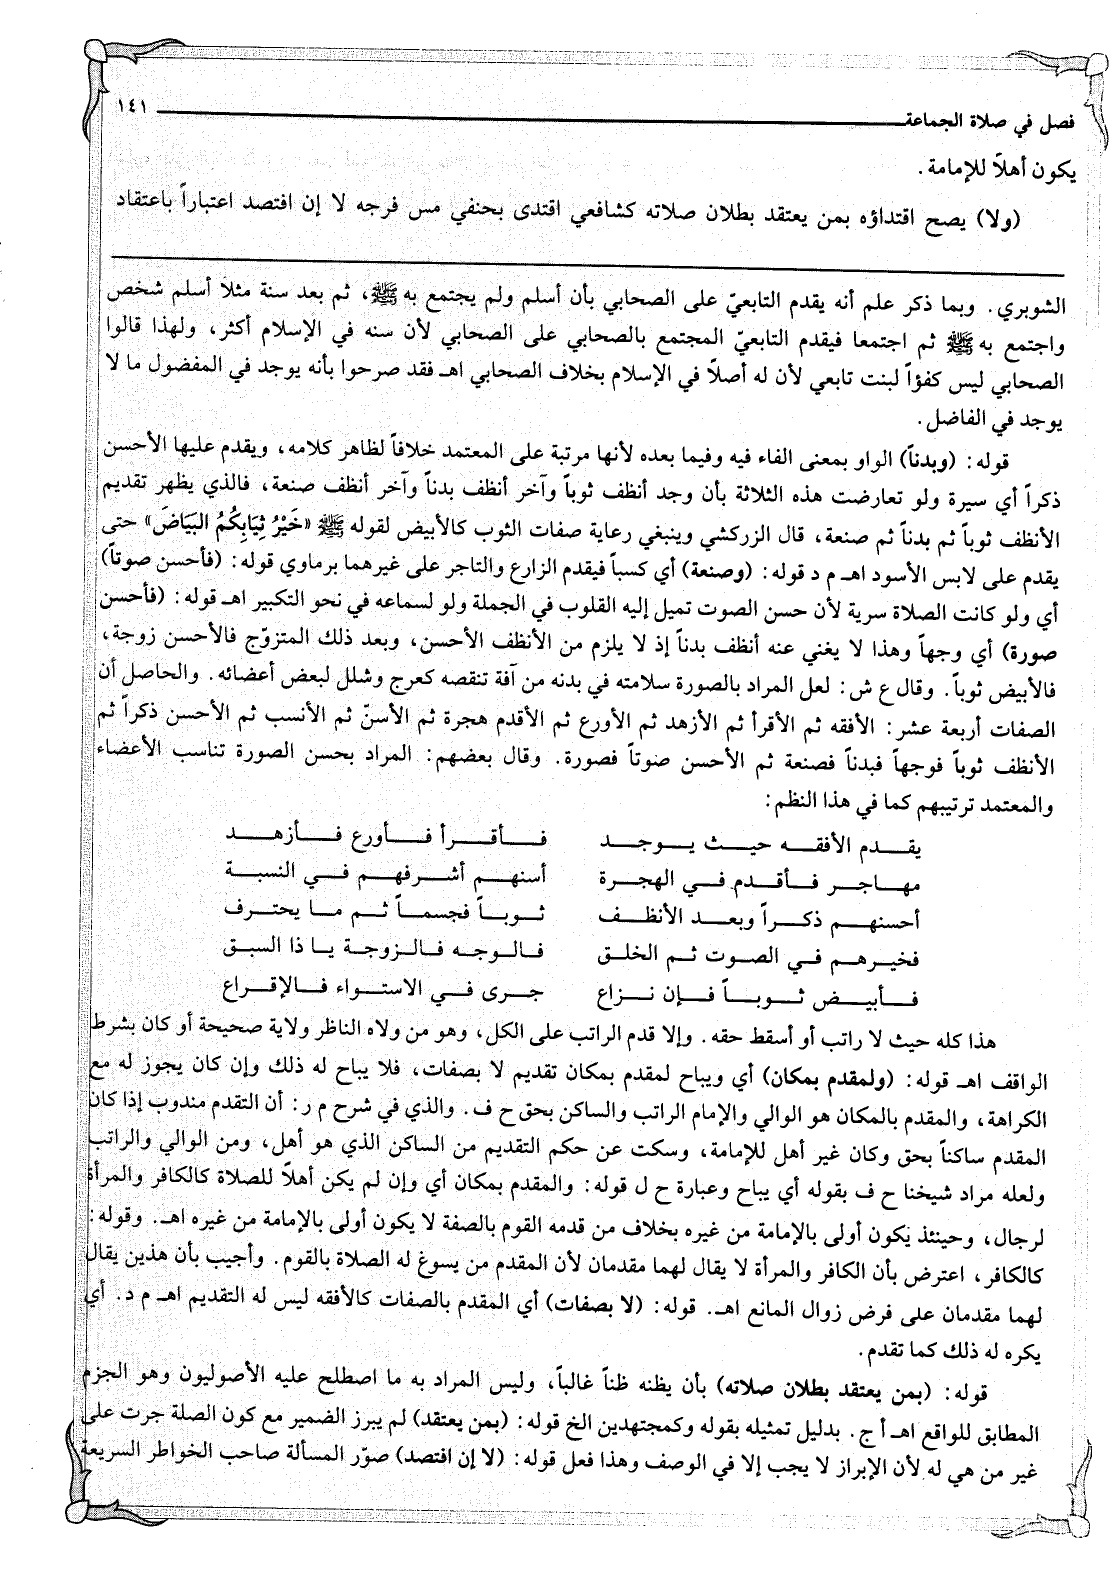 فصل في صلاة الجماعة ١٤١
يكون أهلاً للإمامة.
(ولا) يصح اقتداؤه بمن يعتقد بطلان صلاته كشافعي اقتدى بحنفي مس فرجه لا إن افتصد اعتباراً باعتقاد
الشوبري. وبما ذكر علم أنه يقدم التابعيّ على الصحابي بأن أسلم ولم يجتمع به ﷺ، ثم بعد سنة مثلاً أسلم شخص
واجتمع به ﷺ ثم اجتمعا فيقدم التابعيّ المجتمع بالصحابي على الصحابي لأن سنه في الإسلام أكثر، ولهذا قالوا
الصحابي ليس كفؤاً لبنت تابعي لأن له أصلاً في الإسلام بخلاف الصحابي اهـ فقد صرحوا بأنه يوجد في المفضول ما لا
يوجد في الفاضل.
قوله: (وبدناً) الواو بمعنى الفاء فيه وفيما بعده لأنها مرتبة على المعتمد خلافاً لظاهر كلامه، ويقدم عليها الأحسن
ذكراً أي سيرة ولو تعارضت هذه الثلاثة بأن وجد أنظف ثوباً وآخر أنظف بدناً وآخر أنظف صنعة، فالذي يظهر تقديم
الأنظف ثوباً ثم بدناً ثم صنعة، قال الزركشي وينبغي رعاية صفات الثوب كالأبيض لقوله ﷺ «خَيْرُ ثِيَابِكُمُ البَيَاضَ» حتى
يقدم على لابس الأسود اهـ م د قوله: (وصنعة) أي كسباً فيقدم الزارع والتاجر على غيرهما برماوي قوله: (فأحسن صوتاً)
أي ولو كانت الصلاة سرية لأن حسن الصوت تميل إليه القلوب في الجملة ولو لسماعه في نحو التكبير اهـ قوله: (فأحسن
صورة) أي وجهاً وهذا لا يغني عنه أنظف بدناً إذ لا يلزم من الأنظف الأحسن، وبعد ذلك المتزوّج فالأحسن زوجة،
فالأبيض ثوباً. وقال ع ش: لعل المراد بالصورة سلامته في بدنه من آفة تنقصه كعرج وشلل لبعض أعضائه. والحاصل أن
الصفات أربعة عشر: الأفقه ثم الأقرأ ثم الأزهد ثم الأورع ثم الأقدم هجرة ثم الأسنّ ثم الأنسب ثم الأحسن ذكراً ثم
الأنظف ثوباً فوجهاً فبدناً فصنعة ثم الأحسن صوتاً فصورة. وقال بعضهم: المراد بحسن الصورة تناسب الأعضاء
والمعتمد ترتيبهم كما في هذا النظم:
يقـدم الأفقـه حيـث يـوجـد فـأقـرأ فـأورع فـأزهـد
مهـاجـر فـأقـدم فـي الهجـرة أسنهـم أشـرفهـم فـي النسبـة
أحسنهـم ذكـراً وبعـد الأنظـف ثـوبـاً فجسمـاً ثـم مـا يحتـرف
فخيـرهـم فـي الصـوت ثـم الخلـق فـالـوجـه فـالـزوجـة يـا ذا السبـق
فـأبيـض ثـوبـاً فـإن نـزاع جـرى فـي الاستـواء فـالإقـراع
هذا كله حيث لا راتب أو أسقط حقه. وإلا قدم الراتب على الكل، وهو من ولاه الناظر ولاية صحيحة أو كان بشرط
الواقف اهـ قوله: (ولمقدم بمكان) أي ويباح لمقدم بمكان تقديم لا بصفات، فلا يباح له ذلك وإن كان يجوز له مع
الكراهة، والمقدم بالمكان هو الوالي والإمام الراتب والساكن بحق ح ف. والذي في شرح م ر: أن التقدم مندوب إذا كان
المقدم ساكناً بحق وكان غير أهل للإمامة، وسكت عن حكم التقديم من الساكن الذي هو أهل، ومن الوالي والراتب
ولعله مراد شيخنا ح ف بقوله أي يباح وعبارة ح ل قوله: والمقدم بمكان أي وإن لم يكن أهلاً للصلاة كالكافر والمرأة
لرجال، وحينئذ يكون أولى بالإمامة من غيره بخلاف من قدمه القوم بالصفة لا يكون أولى بالإمامة من غيره اهـ. وقوله:
كالكافر، اعترض بأن الكافر والمرأة لا يقال لهما مقدمان لأن المقدم من يسوغ له الصلاة بالقوم. وأجيب بأن هذين يقال
لهما مقدمان على فرض زوال المانع اهـ. قوله: (لا بصفات) أي المقدم بالصفات كالأفقه ليس له التقديم اهـ م د. أي
يكره له ذلك كما تقدم.
قوله: (بمن يعتقد بطلان صلاته) بأن يظنه ظناً غالباً، وليس المراد به ما اصطلح عليه الأصوليون وهو الجزم
المطابق للواقع اهـ أ ج. بدليل تمثيله بقوله وكمجتهدين الخ قوله: (بمن يعتقد) لم يبرز الضمير مع كون الصلة جرت على
غير من هي له لأن الإبراز لا يجب إلا في الوصف وهذا فعل قوله: (لا إن افتصد) صوّر المسألة صاحب الخواطر السريعة